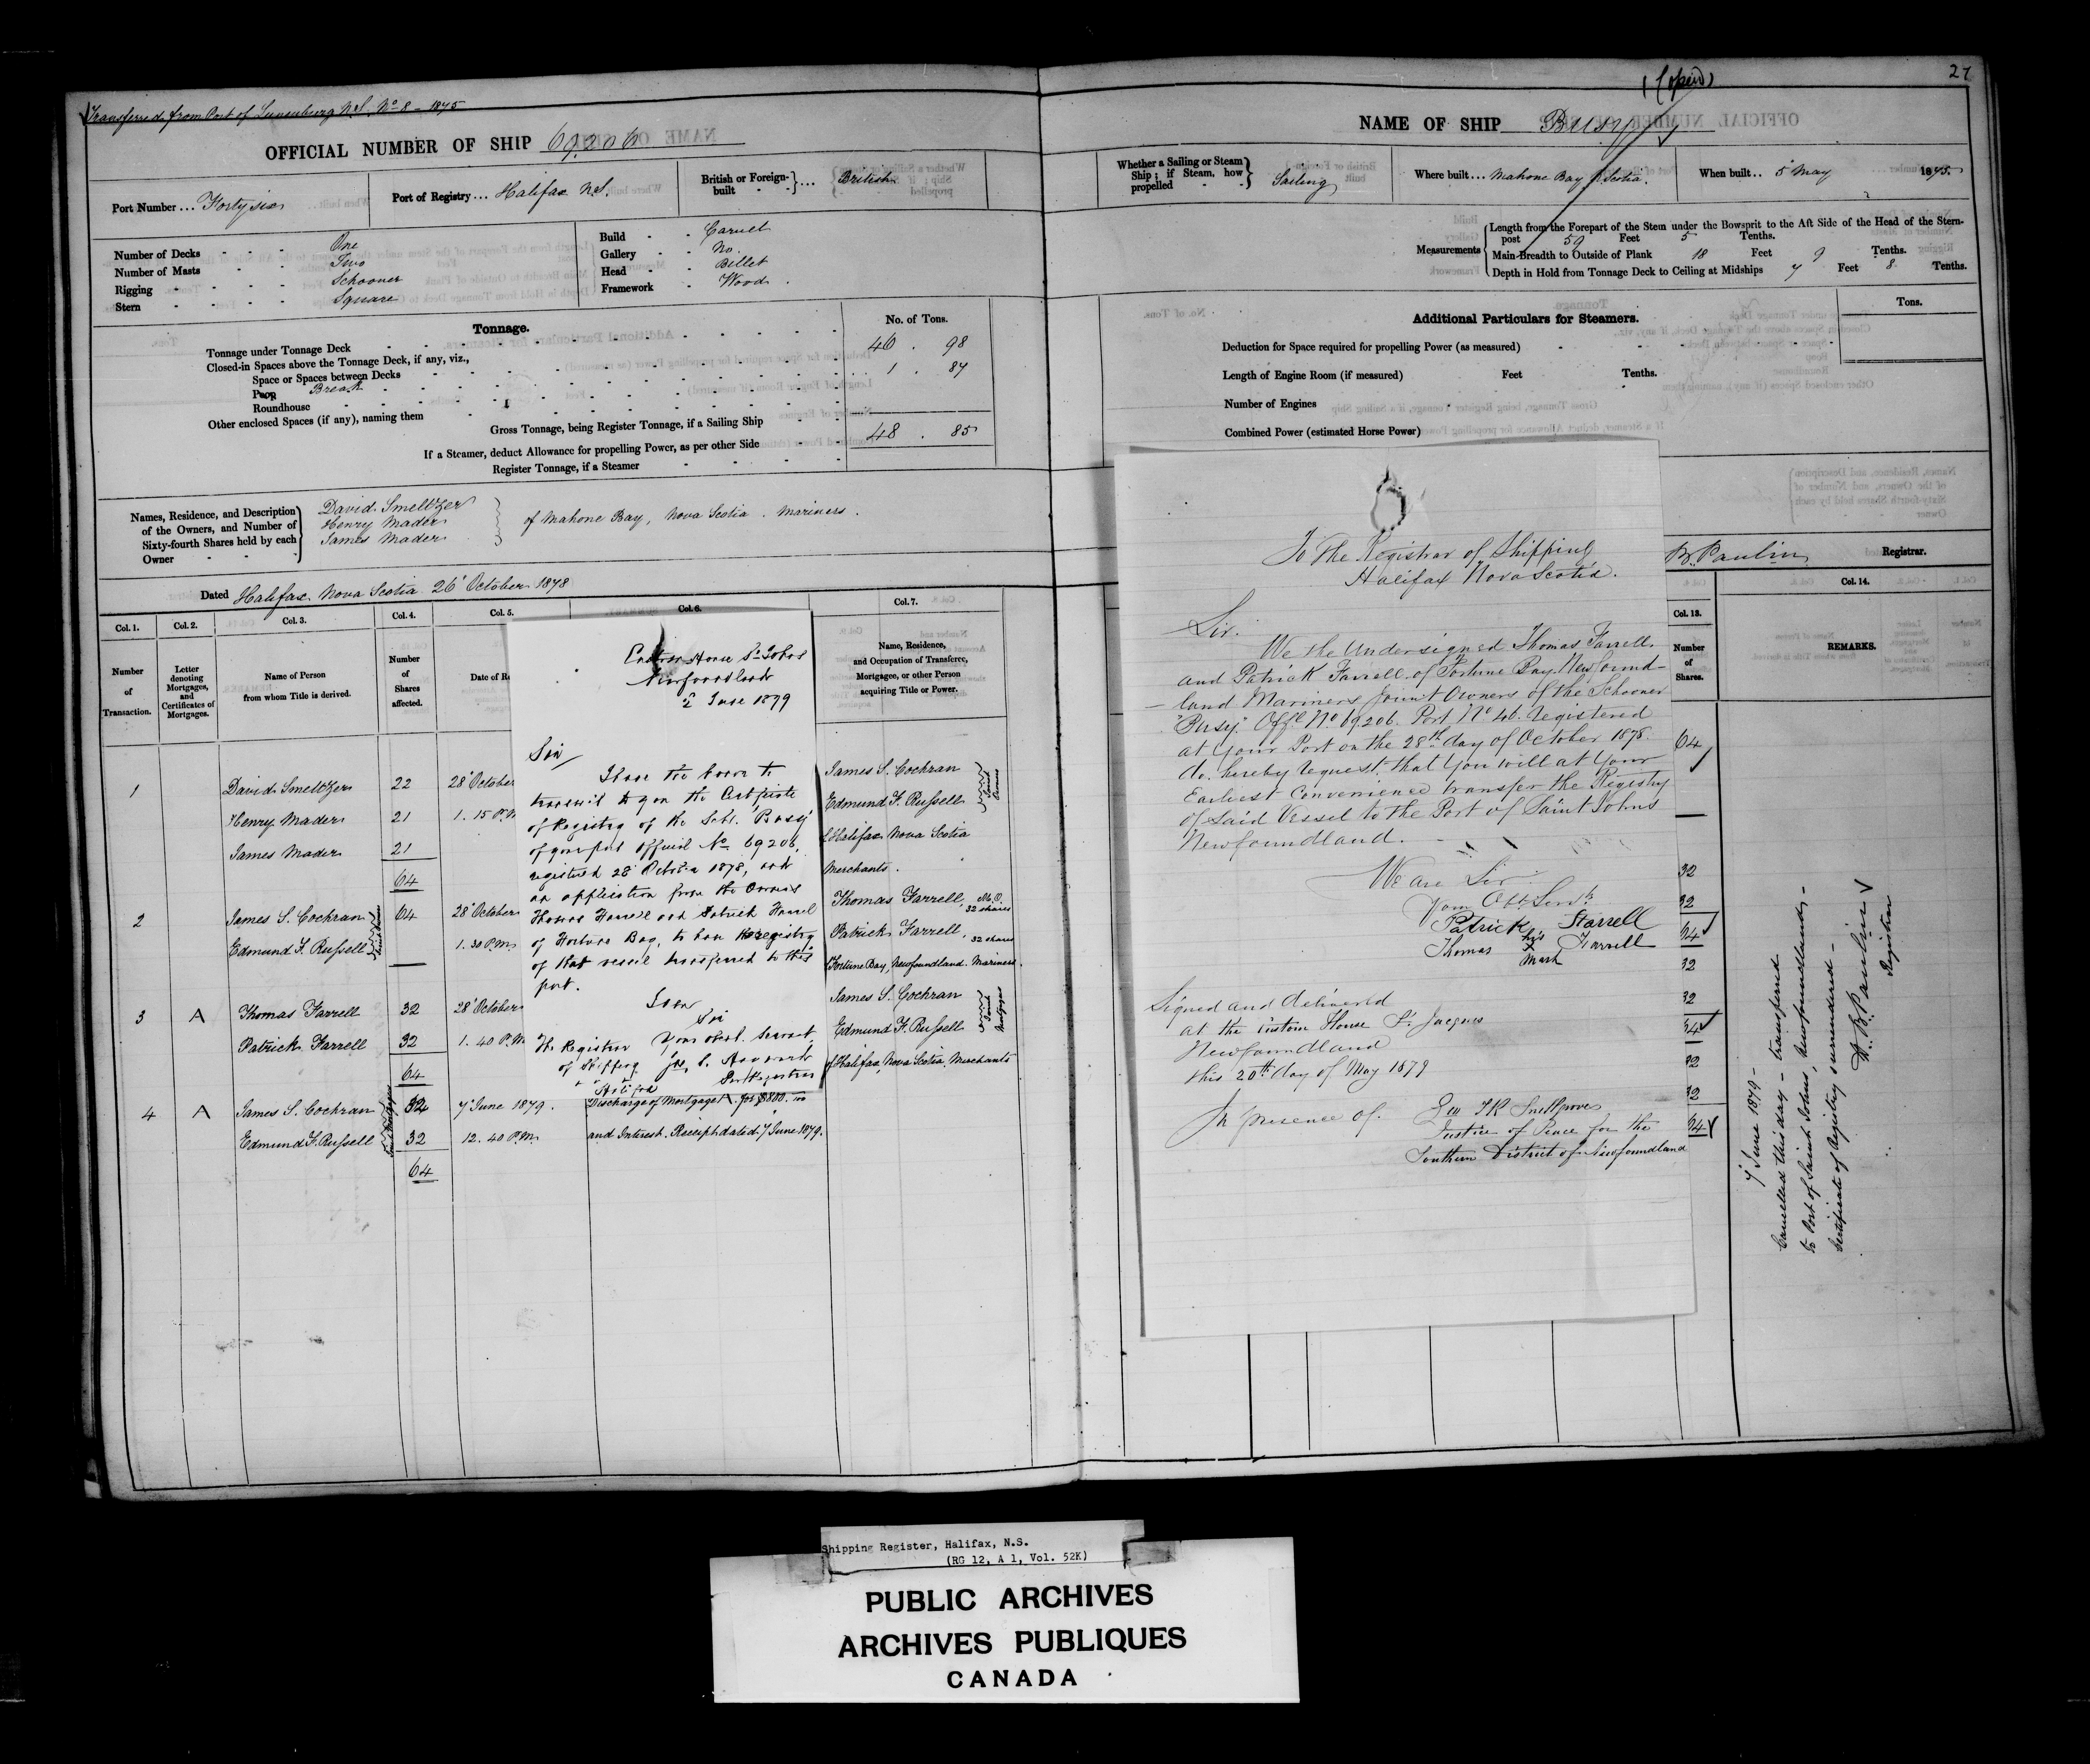 Transferred from Port of Lunenburg N.S. No 8 - 1875
OFFICIAL NUMBER OF SHIP 69206
Port Number ... Forty six
Port of Registry ... Halifax N.S.
British or Foreign-built } ... British
Number of Decks One
Number of Masts Two
Rigging Schooner
Stern Square
Build Carvel
Gallery No.
Head Billet
Framework Wood.
Tonnage.
No. of Tons.
Tonnage under Tonnage Deck 46 . 98
Closed-in Spaces above the Tonnage Deck, if any, viz.,
Space or Spaces between Decks 1 . 87
Poop Break
Roundhouse
Other enclosed Spaces (if any), naming them
Gross Tonnage, being Register Tonnage, if a Sailing Ship 48 . 85
If a Steamer, deduct Allowance for propelling Power, as per other Side
Register Tonnage, if a Steamer
Names, Residence, and Description
of the Owners, and Number of
Sixty-fourth Shares held by each
Owner
David Smeltzer
Henry Mader
James Mader
of Mahone Bay, Nova Scotia. Mariners.
Dated Halifax Nova Scotia 26' October 1878
Col. 1. Col. 2. Col. 3. Col. 4. Col. 5. Col. 6. Col. 7.
Number of Transaction.
Letter denoting Mortgages, and Certificates of Mortgages.
Name of Person from whom Title is derived.
Number of Shares affected.
Date of Re
Name, Residence, and Occupation of Transferee, Mortgagee, or other Person acquiring Title or Power.
1 David Smeltzer 22 28' October
Henry Mader 21 1. 15 P.M
James Mader 21
64
James S. Cochran
Edmund F. Russell
Joint Owners
of Halifax Nova Scotia
Merchants.
2 James S. Cochran 64 28' October
Edmund F. Russell 1. 30 P.M.
Joint Owners
Thomas Farrell, M.O. 32 shares
Patrick Farrell, 32 shares
Fortune Bay, Newfoundland. Mariners.
3 A Thomas Farrell 32 28' October
Patrick Farrell 32 1. 40 P.M
64
James S. Cochran
Edmund F. Russell
Joint Mortgagees
of Halifax, Nova Scotia, Merchants
4 A James S. Cochran 32 7' June 1879.
Edmund F. Russell 32 12. 40 P.M.
Joint Mortgagees
64
Discharge of Mortgage A. for $800.
and Interest. Receipt dated 7 June 1879.
Custom House St Johns
Newfoundland
2 June 1879
Sir
I have the honor to
transmit to you the Certificate
of Registry of the Schr. "Busy"
of your port Official No 69206,
registered 28' October 1878, and
an application from the Owners
Thomas Farrell and Patrick Farrell
of Fortune Bay, to have the registry
of that vessel transferred to this
port.
I am
Sir
Your obedt. Servant,
The Registrar
of Shipping
Halifax
NAME OF SHIP Busy
27
Whether a Sailing or Steam
Ship; if Steam, how
propelled
Sailing
Where built ... Mahone Bay N. Scotia.
When built .. 5 May 1875.
Measurements
Length from the Forepart of the Stem under the Bowsprit to the Aft Side of the Head of the Stern-
post 59 Feet 5 Tenths.
Main-Breadth to Outside of Plank 18 Feet 9 Tenths.
Depth in Hold from Tonnage Deck to Ceiling at Midships 7 Feet 8 Tenths.
Additional Particulars for Steamers.
Tons.
Deduction for Space required for propelling Power (as measured)
Length of Engine Room (if measured) Feet Tenths.
Number of Engines
Combined Power (estimated Horse Power)
To The Registrar of Shipping
Halifax Nova Scotia.
Sir.
We the Undersigned Thomas Farrell
and Patrick Farrell of Fortune Bay Newfound-
land Mariners Joint Owners of the Schooner
"Busy" Offl No 69.206. Port No 46. registered
at Your Port on the 28th day of October 1878
do. hereby request that You will at Your
Earliest Convenience transfer the Registry
of Said Vessel to the Port of Saint Johns
Newfoundland.
We are Sir
Your Obt. Servts
Patrick Farrell
Thomas his X mark Farrell
Signed and delivered
at the Custom House St. Jacques
Newfoundland
this 20th day of May 1879
In presence of.
Justice of Peace for the
Southern District of Newfoundland
B. Paulin Registrar.
Col. 13. Col. 14.
Number of Shares.
REMARKS.
64
32
32
64
32
32
64
32
32
64
7' June 1879 -
Cancelled this day - transferred
to Port of Saint Johns, Newfoundland, -
Certificate of Registry surrendered -
B. Paulin
Registrar
Shipping Register, Halifax, N.S.
(RG 12, A 1, Vol. 52K)
PUBLIC ARCHIVES
ARCHIVES PUBLIQUES
CANADA